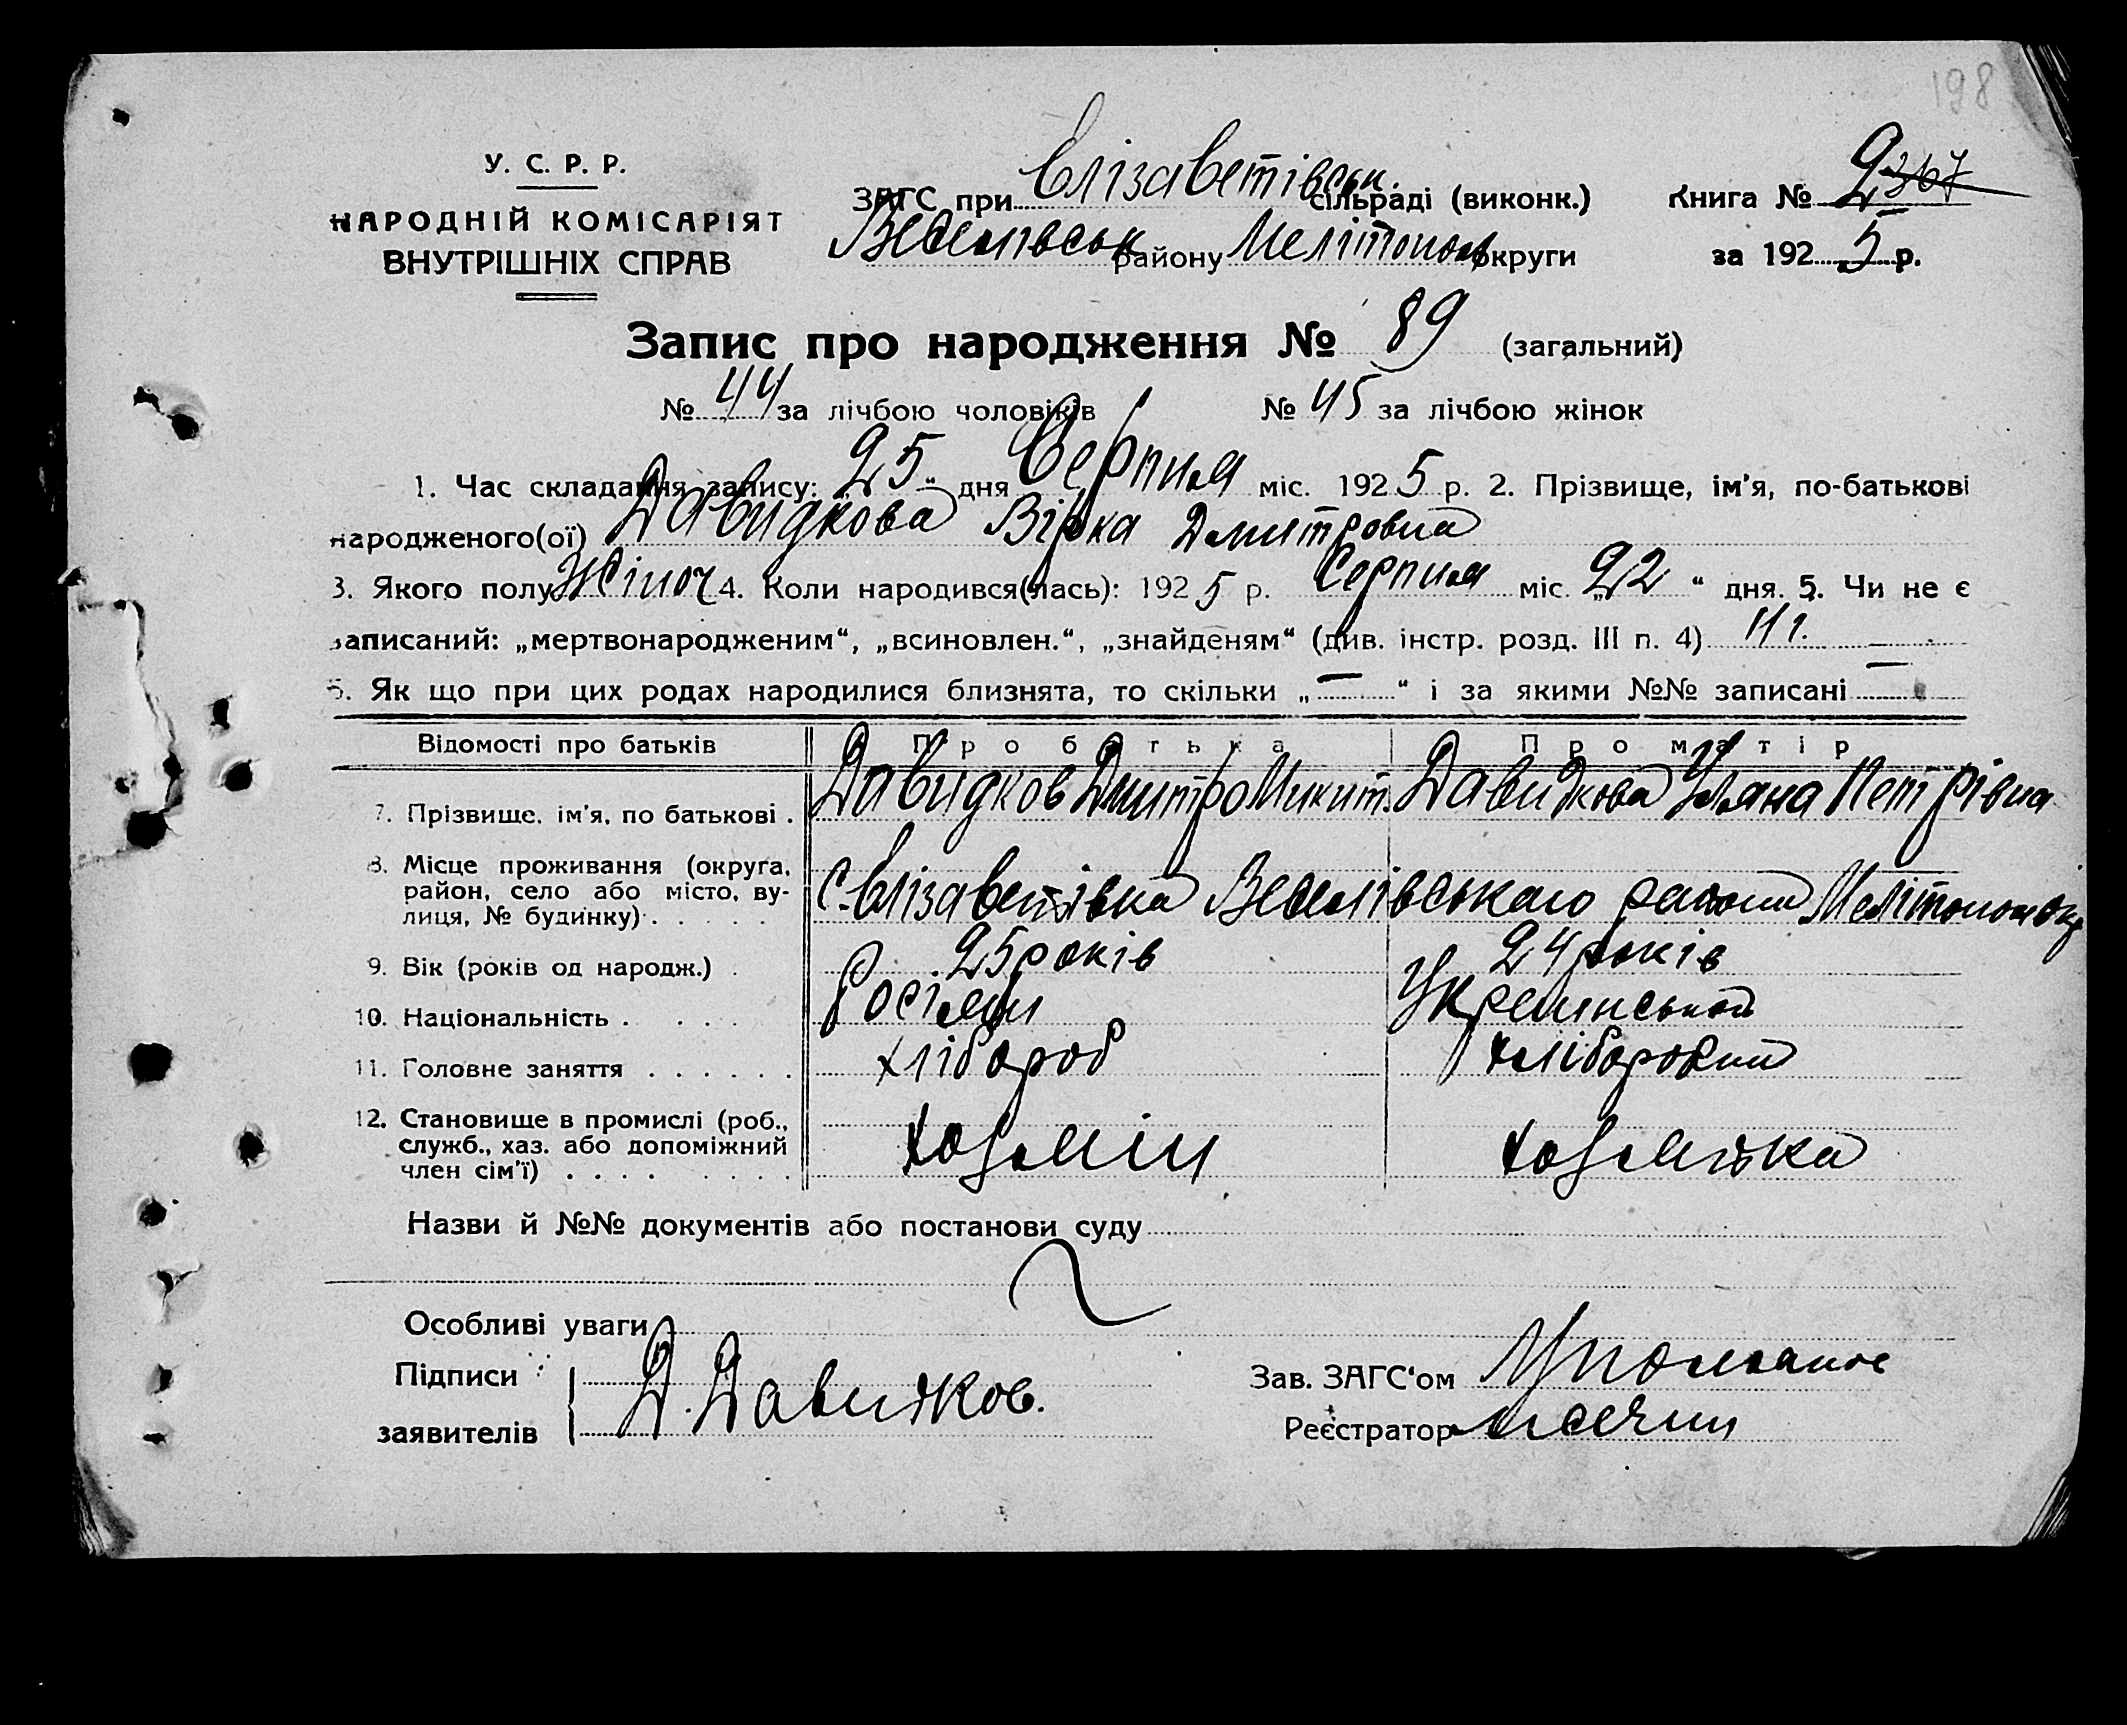 198
У. С. Р. Р.
НАРОДНІЙ КОМІСАРІЯТ
ВНУТРІШНІХ СПРАВ
ЗАГС при Єлізаветівськ. сільраді (виконк.)
Веселівськ району Мелітопол округи
Книга № 2 367
за 1925 р.
Запис про народження № 89 (загальний)
№ 44 за лічбою чоловіків № 45 за лічбою жінок
1. Час складання запису: „25“ дня Серпня міс. 1925 р. 2. Прізвище, ім'я, по-батькові
народженого(ої) Давидкова Вірка Дмитровна
3. Якого полу Жіноч 4. Коли народився(лась): 1925 р. Серпня міс. „22“ дня. 5. Чи не є
записаний: „мертвонародженим“, „всиновлен.“, „знайденям“ (див. інстр. розд. III п. 4) Ні.
6. Як що при цих родах народилися близнята, то скільки „—“ і за якими №№ записані —
Відомості про батьків Про батька Про матір
7. Прізвище, ім'я, по батькові . Давидков Дмитро Микит. Давидкова Уляна Петрівна
8. Місце проживання (округа,
район, село або місто, ву-
лиця, № будинку) . . . . . С. Єлізаветівка Веселівського району Мелітопол окр
9. Вік (років од народж.) . 25 років 24 років
10. Національність . . . . Росіянин Украинськой
11. Головне заняття . . . . . . хлібороб
12. Становище в промислі (роб.,
служб., хаз. або допоміжний
член сім'ї) . . . . . . . . хозяїн хозяйка
Назви й №№ документів або постанови суду
Особливі уваги
Підписи
заявителів Д. Давидков.
Зав. ЗАГС'ом
Реєстратор